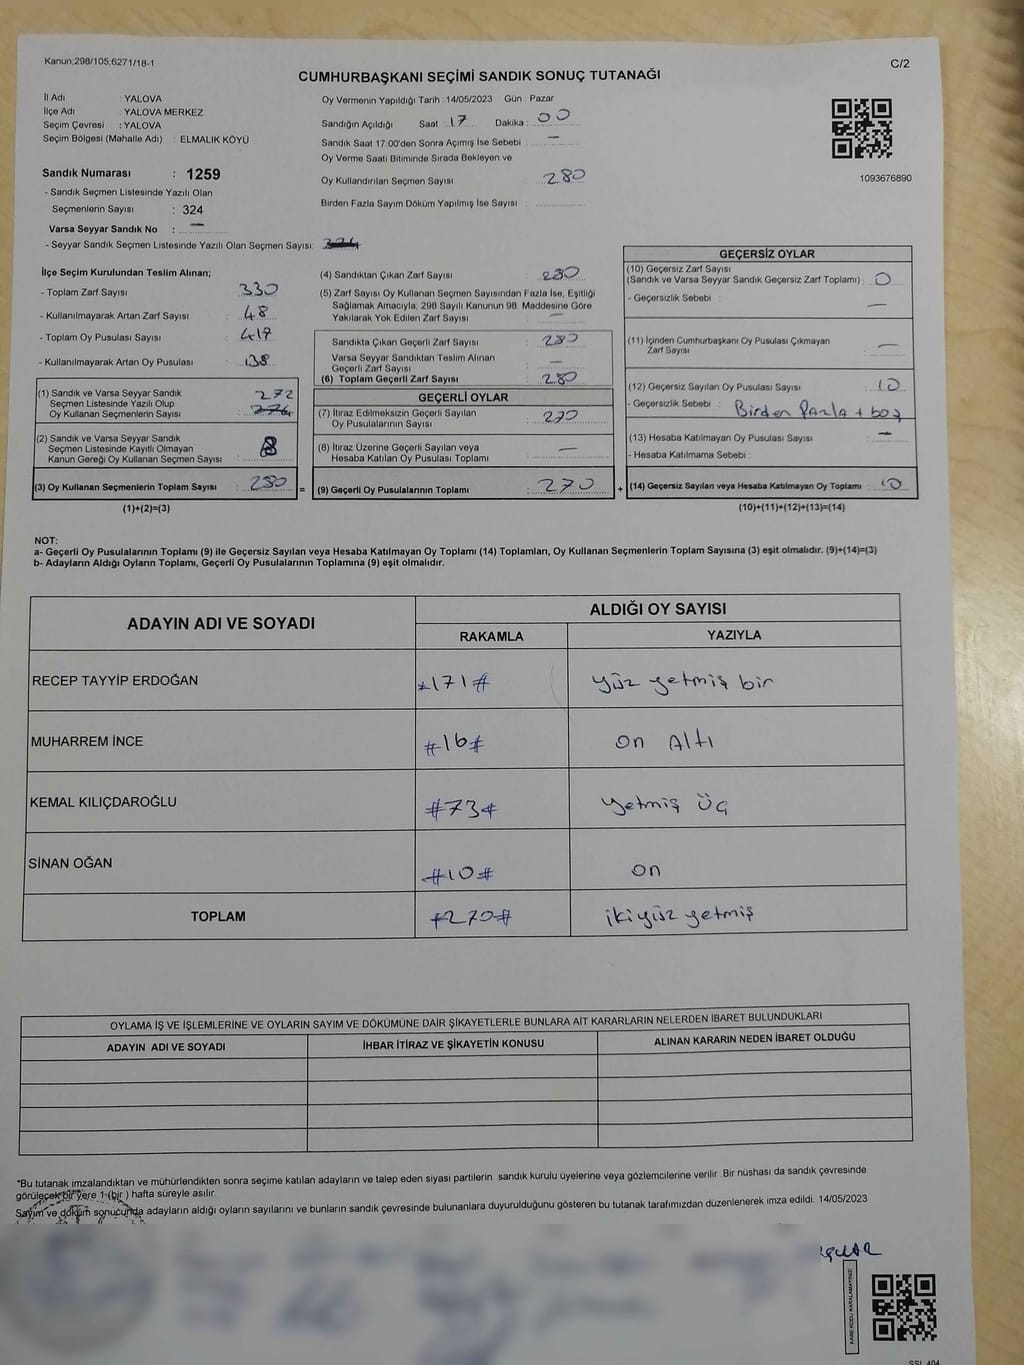 Kanun,298/105,6271/18-1
C/2
CUMHURBAŞKANI SEÇİMİ SANDIK SONUÇ TUTANAĞI
İl Adı : YALOVA
İlçe Adı : YALOVA MERKEZ
Seçim Çevresi : YALOVA
Seçim Bölgesi (Mahalle Adı) : ELMALIK KÖYÜ
Sandık Numarası : 1259
- Sandık Seçmen Listesinde Yazılı Olan
Seçmenlerin Sayısı : 324
Varsa Seyyar Sandık No : —
- Seyyar Sandık Seçmen Listesinde Yazılı Olan Seçmen Sayısı:
Oy Vermenin Yapıldığı Tarih :14/05/2023 Gün : Pazar
Sandığın Açıldığı Saat : 17 Dakika : 00
Sandık Saat 17:00'den Sonra Açımış İse Sebebi —
Oy Verme Saati Bitiminde Sırada Bekleyen ve
Oy Kullandırılan Seçmen Sayısı 280
Birden Fazla Sayım Döküm Yapılmış İse Sayısı :
1093676890
İlçe Seçim Kurulundan Teslim Alınan;
- Toplam Zarf Sayısı 330
- Kullanılmayarak Artan Zarf Sayısı : 48
- Toplam Oy Pusulası Sayısı : 417
- Kullanılmayarak Artan Oy Pusulası : 138
(1) Sandık ve Varsa Seyyar Sandık
Seçmen Listesinde Yazılı Olup
Oy Kullanan Seçmenlerin Sayısı : 272
(2) Sandık ve Varsa Seyyar Sandık
Seçmen Listesinde Kayıtlı Olmayan
Kanun Gereği Oy Kullanan Seçmen Sayısı : 8
(3) Oy Kullanan Seçmenlerin Toplam Sayısı : 280 =
(1)+(2)=(3)
(4) Sandıktan Çıkan Zarf Sayısı : 280
(5) Zarf Sayısı Oy Kullanan Seçmen Sayısından Fazla İse, Eşitliği
Sağlamak Amacıyla; 298 Sayılı Kanunun 98. Maddesine Göre
Yakılarak Yok Edilen Zarf Sayısı : —
Sandıkta Çıkan Geçerli Zarf Sayısı : 280
Varsa Seyyar Sandıktan Teslim Alınan
Geçerli Zarf Sayısı : —
(6) Toplam Geçerli Zarf Sayısı : 280
GEÇERLİ OYLAR
(7) İtiraz Edilmeksizin Geçerli Sayılan
Oy Pusulalarının Sayısı : 270
(8) İtiraz Üzerine Geçerli Sayılan veya
Hesaba Katılan Oy Pusulası Toplamı : —
(9) Geçerli Oy Pusulalarının Toplamı : 270 +
GEÇERSİZ OYLAR
(10) Geçersiz Zarf Sayısı
(Sandık ve Varsa Seyyar Sandık Geçersiz Zarf Toplamı) : 0
- Geçersizlik Sebebi : —
(11) İçinden Cumhurbaşkanı Oy Pusulası Çıkmayan
Zarf Sayısı : —
(12) Geçersiz Sayılan Oy Pusulası Sayısı : 10
- Geçersizlik Sebebi : Birden Fazla + boş
(13) Hesaba Katılmayan Oy Pusulası Sayısı : —
- Hesaba Katılmama Sebebi :
(14) Geçersiz Sayılan veya Hesaba Katılmayan Oy Toplamı : 10
(10)+(11)+(12)+(13)=(14)
NOT:
a- Geçerli Oy Pusulalarının Toplamı (9) ile Geçersiz Sayılan veya Hesaba Katılmayan Oy Toplamı (14) Toplamları, Oy Kullanan Seçmenlerin Toplam Sayısına (3) eşit olmalıdır. (9)+(14)=(3)
b- Adayların Aldığı Oyların Toplamı, Geçerli Oy Pusulalarının Toplamına (9) eşit olmalıdır.
ADAYIN ADI VE SOYADI ALDIĞI OY SAYISI
RAKAMLA YAZIYLA
RECEP TAYYİP ERDOĞAN #171# yüz yetmiş bir
MUHARREM İNCE #16# on Altı
KEMAL KILIÇDAROĞLU #73# yetmiş Üç
SİNAN OĞAN #10# on
TOPLAM #270# ikiyüz yetmiş
OYLAMA İŞ VE İŞLEMLERİNE VE OYLARIN SAYIM VE DÖKÜMÜNE DAİR ŞİKAYETLERLE BUNLARA AİT KARARLARIN NELERDEN İBARET BULUNDUKLARI
ADAYIN ADI VE SOYADI İHBAR İTİRAZ VE ŞİKAYETİN KONUSU ALINAN KARARIN NEDEN İBARET OLDUĞU
*Bu tutanak imzalandıktan ve mühürlendikten sonra seçime katılan adayların ve talep eden siyasi partilerin sandık kurulu üyelerine veya gözlemcilerine verilir. Bir nüshası da sandık çevresinde
görülecek bir yere 1 (bir ) hafta süreyle asılır.
Sayım ve döküm sonucunda adayların aldığı oyların sayılarını ve bunların sandık çevresinde bulunanlara duyurulduğunu gösteren bu tutanak tarafımızdan düzenlenerek imza edildi. 14/05/2023
KARE KODU KARALAMAYINIZ!